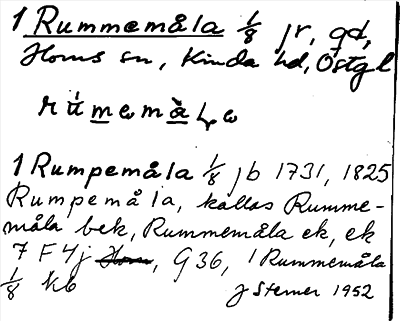 1 Rummemåla 1/8 jr, gd,
Horns sn, Kinda hd, Östgl
1 Rumpemåla 1/8 jb 1731, 1825
Rumpemåla, kallas Rumme-
måla bek, Rummemåla ek, ek
7 F 4j, G 36, 1 Rummemåla
1/8 kb J Sterner 1952